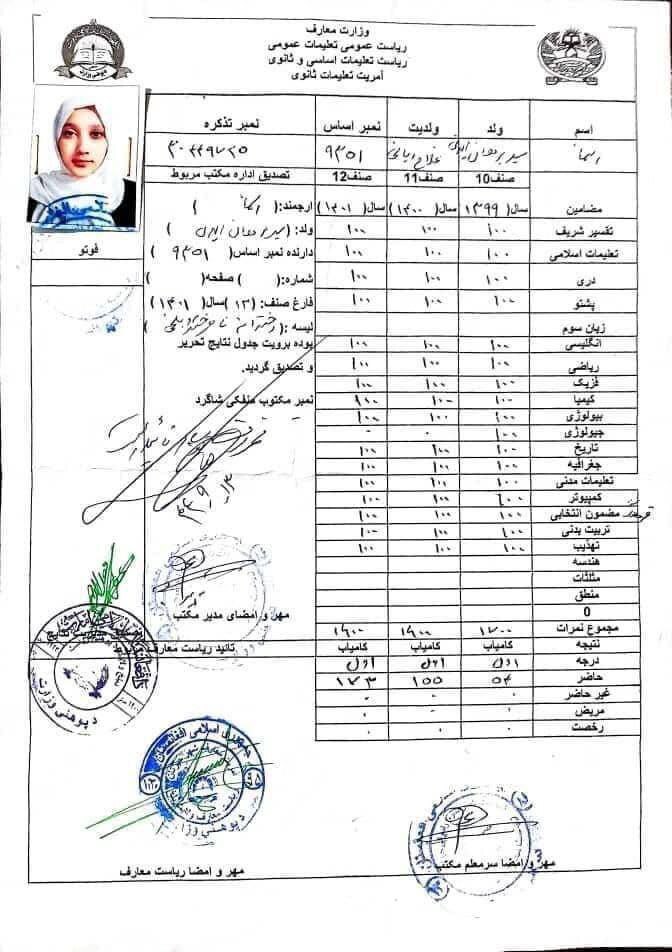 وزارت معارف
ریاست عمومی تعلیمات عمومی
ریاست تعلیمات اساسی و ثانوی
آمریت تعلیمات ثانوی
اسم ولد ولدیت نمبر اساس نمبر تذکره
اسما ۹۳۵۱
صنف10 صنف11 صنف12 تصدیق اداره مکتب مربوط
مضامین سال( ۱۳۹۹ ) سال( ۱۴۰۰ ) سال( ۱۴۰۱ ) ارجمند: ( اسما )
تفسیر شریف ۱۰۰ ۱۰۰ ۱۰۰ ولد: ( )
فوتو
تعلیمات اسلامی ۱۰۰ ۱۰۰ ۱۰۰ دارنده نمبر اساس( ۹۳۵۱ )
دری ۱۰۰ ۱۰۰ ۱۰۰ شماره:( ) صفحه( )
پشتو ۱۰۰ ۱۰۰ ۱۰۰ فارغ صنف: (۱۲) سال( ۱۴۰۱ )
زبان سوم لیسه :( )
انگلیسی ۱۰۰ ۱۰۰ ۱۰۰ بوده برویت جدول نتایج تحریر
ریاضی ۱۰۰ ۱۰۰ ۱۰۰ و تصدیق گردید.
فزیک ۱۰۰ ۱۰۰ ۱۰۰
کیمیا ۱۰۰ ۱۰۰ ۱۰۰ نمبر مکتوب منفکی شاگرد
بیولوژی ۱۰۰ ۱۰۰ ۱۰۰
جیولوژی ۱۰۰ - -
تاریخ ۱۰۰ ۱۰۰ ۱۰۰
جغرافیه ۱۰۰ ۱۰۰ ۱۰۰
تعلیمات مدنی ۱۰۰ ۱۰۰ ۱۰۰
کمپیوتر ۱۰۰ ۱۰۰ ۱۰۰
مضمون انتخابی ۱۰۰ ۱۰۰ ۱۰۰
تربیت بدنی ۱۰۰ ۱۰۰ ۱۰۰
تهذیب ۱۰۰ ۱۰۰ ۱۰۰
هندسه
مثلثات
منطق
0
مهر و امضای مدیر مکتب
مجموع نمرات ۱۷۰۰ ۱۶۰۰ ۱۶۰۰
نتیجه کامیاب کامیاب کامیاب تائید ریاست معارف
درجه اول اول اول
حاضر ۵۴ ۱۵۵ ۱۷۳
غیر حاضر - - -
مریض
رخصت
د پوهنې وزارت
جمهوری اسلامی افغانستان
مهر و امضا سرمعلم مکتب
مهر و امضا ریاست معارف